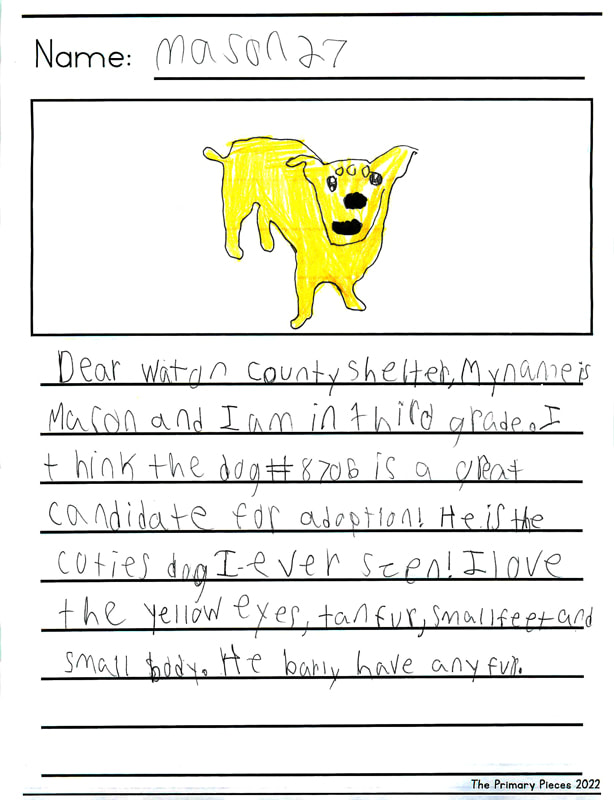 Name: Mason 27
Dear Watan county shelter, My name is
Mason and I am in third grade. I
think the dog #8706 is a great
candidate for adoption! He is the
coties dog I ever seen! I love
the yellow eyes, tan fur, small feet and
small body. He barly have any fur.
The Primary Pieces 2022